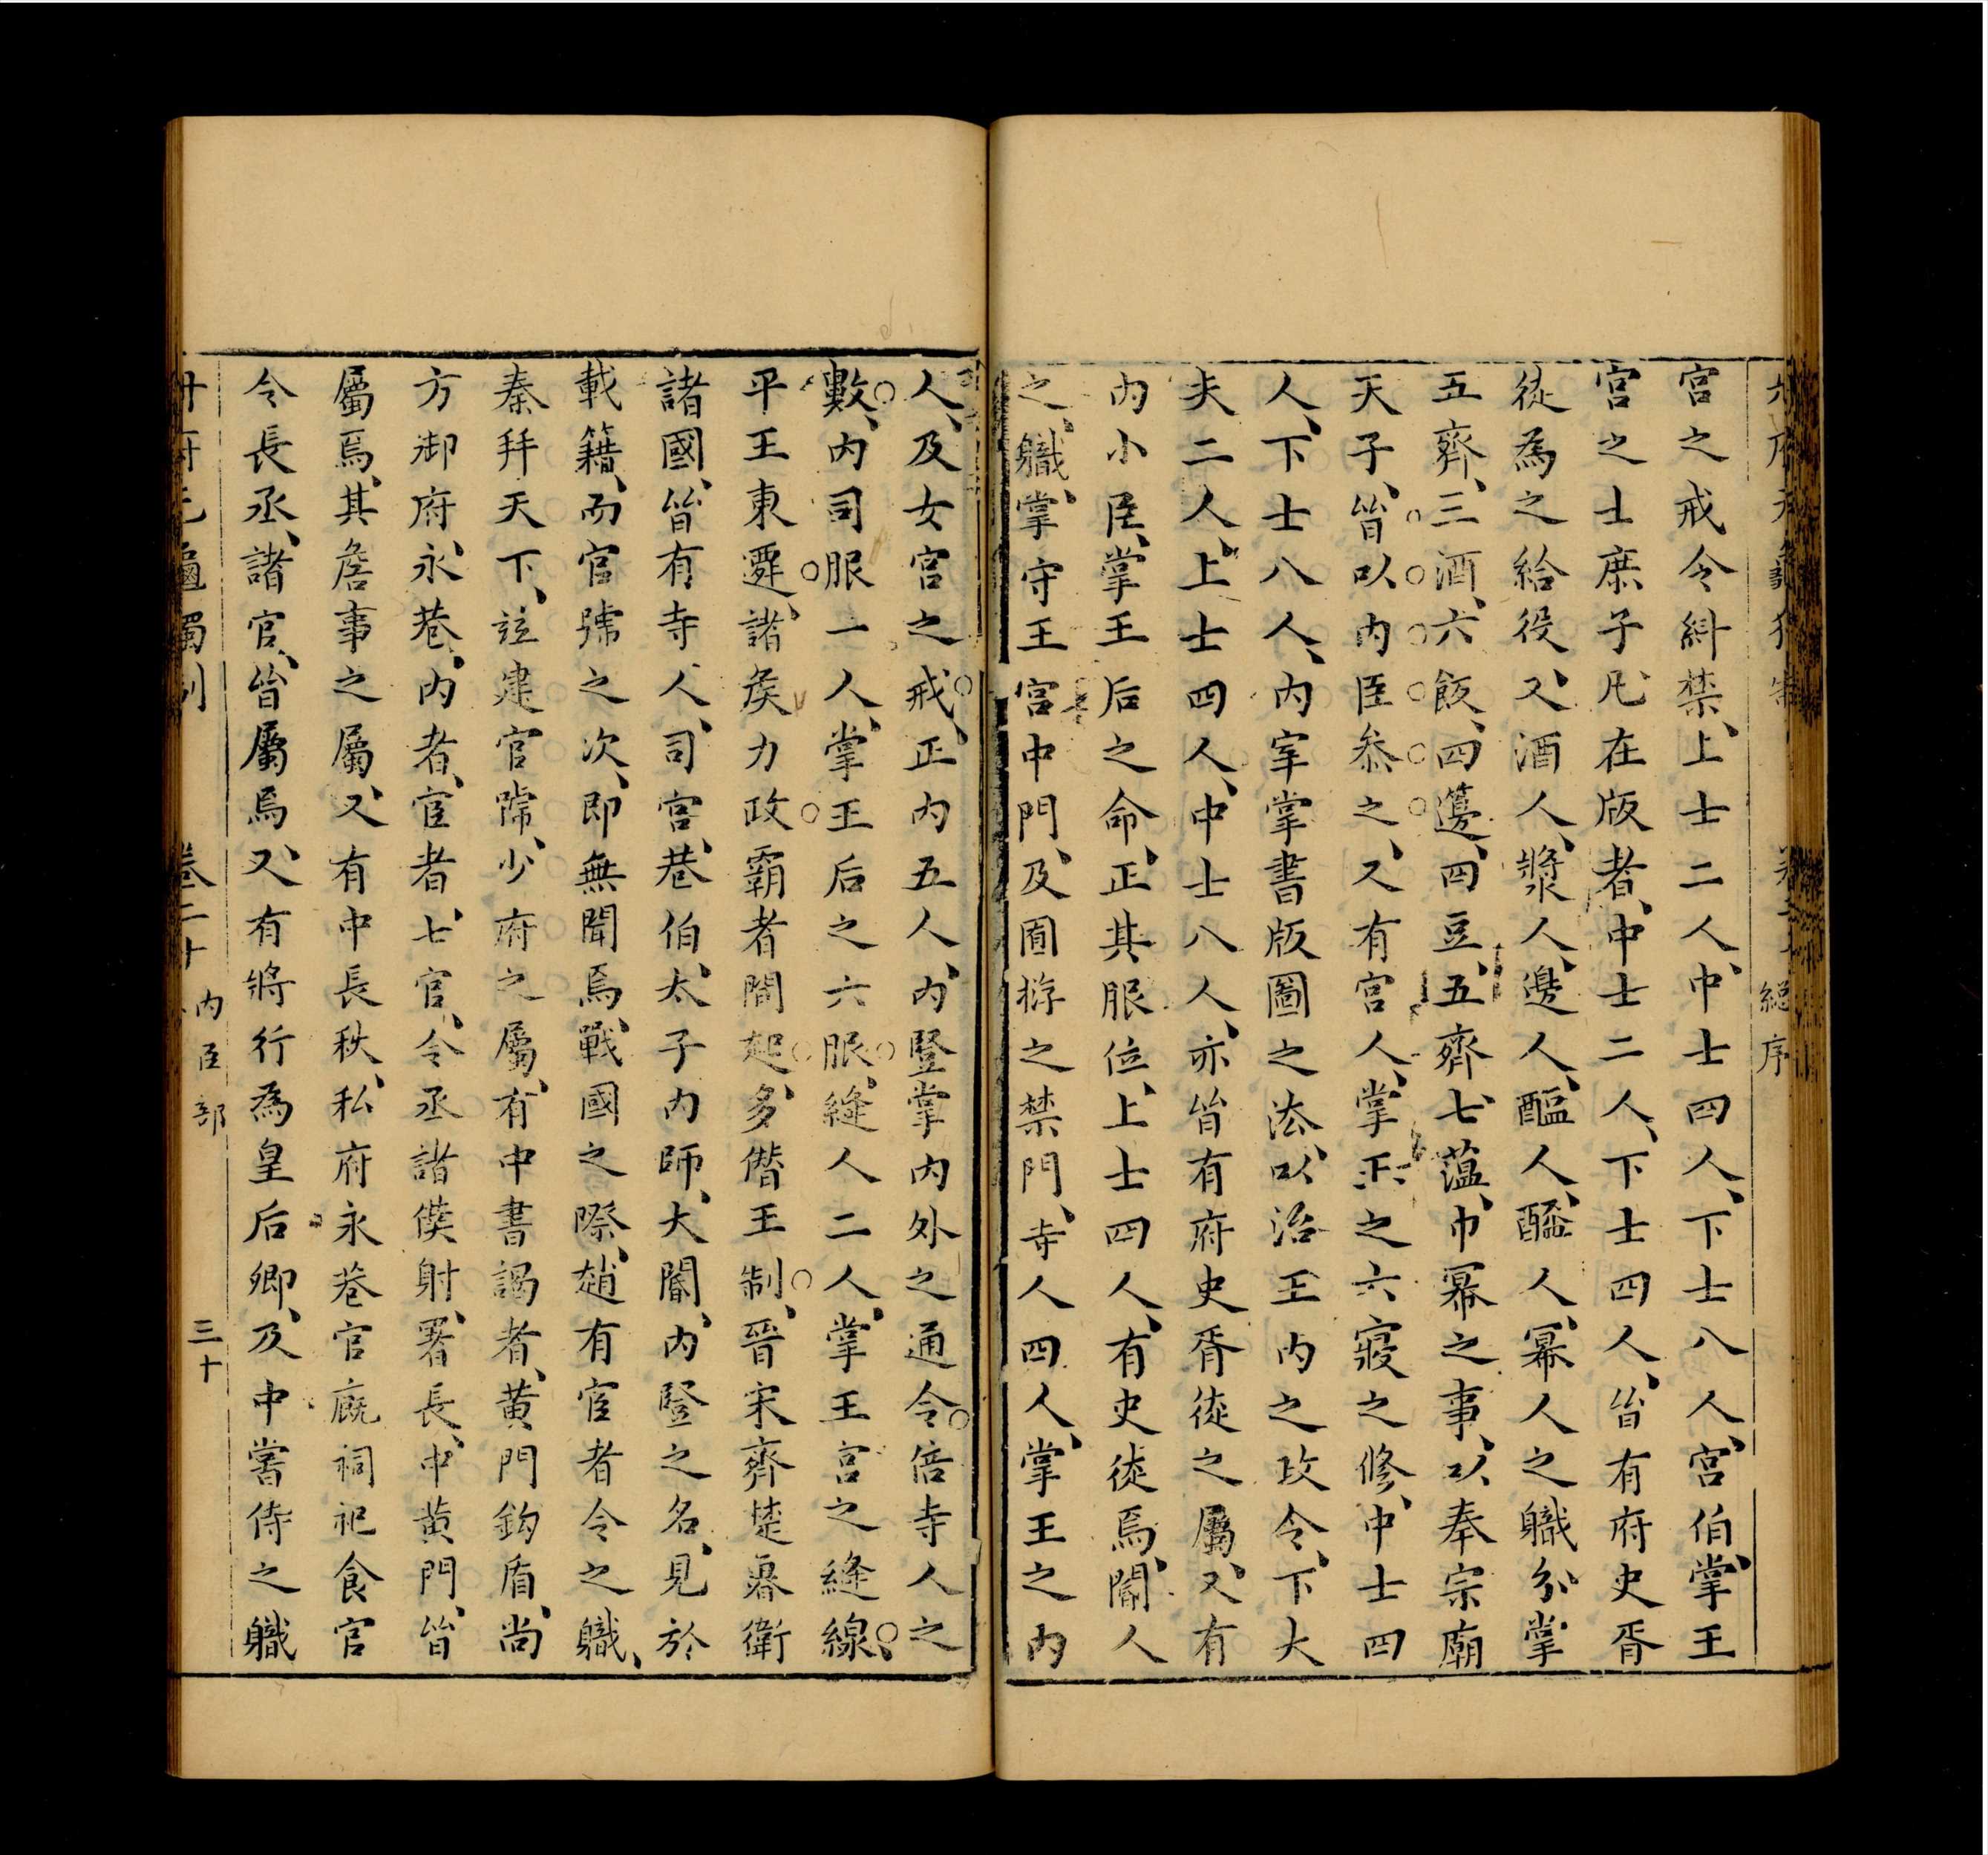 宮之戒令糾禁、上士二人、中士四人、下士八人、宮伯掌王
宮之士庶子凡在版者、中士二人、下士四人、皆有府史胥
徒為之給役、又酒人、漿人、邊人、醢人、醯人、冪人之職分掌
五齊、三酒、六飯、四籩、四豆、五齊、七葅、巾冪之事、以奉宗廟
天子、皆以內臣叅之、又有宮人、掌王之六寢之修、中士四
人、下士八人、內宰掌書版圖之法、以治王內之政令、下大
夫二人、上士四人、中士八人、亦皆有府史胥徒之屬、又有
內小臣、掌王后之命、正其服位、上士四人、有史徒焉、閽人
之職、掌守王宮中門、及囿游之禁門、寺人四人、掌王之內
人、及女宮之戒、正內五人、內豎掌內外之通令倍寺人之
數、內司服一人、掌王后之六服、縫人二人、掌王宮之縫線、
平王東遷、諸侯力政霸者閒起、多僭王制、晉宋齊楚魯衛
諸國、皆有寺人、司宮、巷伯、太子內師、大閽、內豎之名、見於
載籍、而官號之次、即無聞焉、戰國之際、趙有宦者令之職、
秦拜天下、竝建官號、少府之屬、有中書謁者、黃門鈎盾、尚
方御府、永巷、內者、宦者、七官、令丞諸僕射、署長、中黃門、皆
屬焉、其詹事之屬、又有中長秋、私府永巷官廐祠祀食官
令長丞、諸官、皆屬焉、又有將行為皇后卿、及中嘗侍之職
卷二十 內臣部 三十